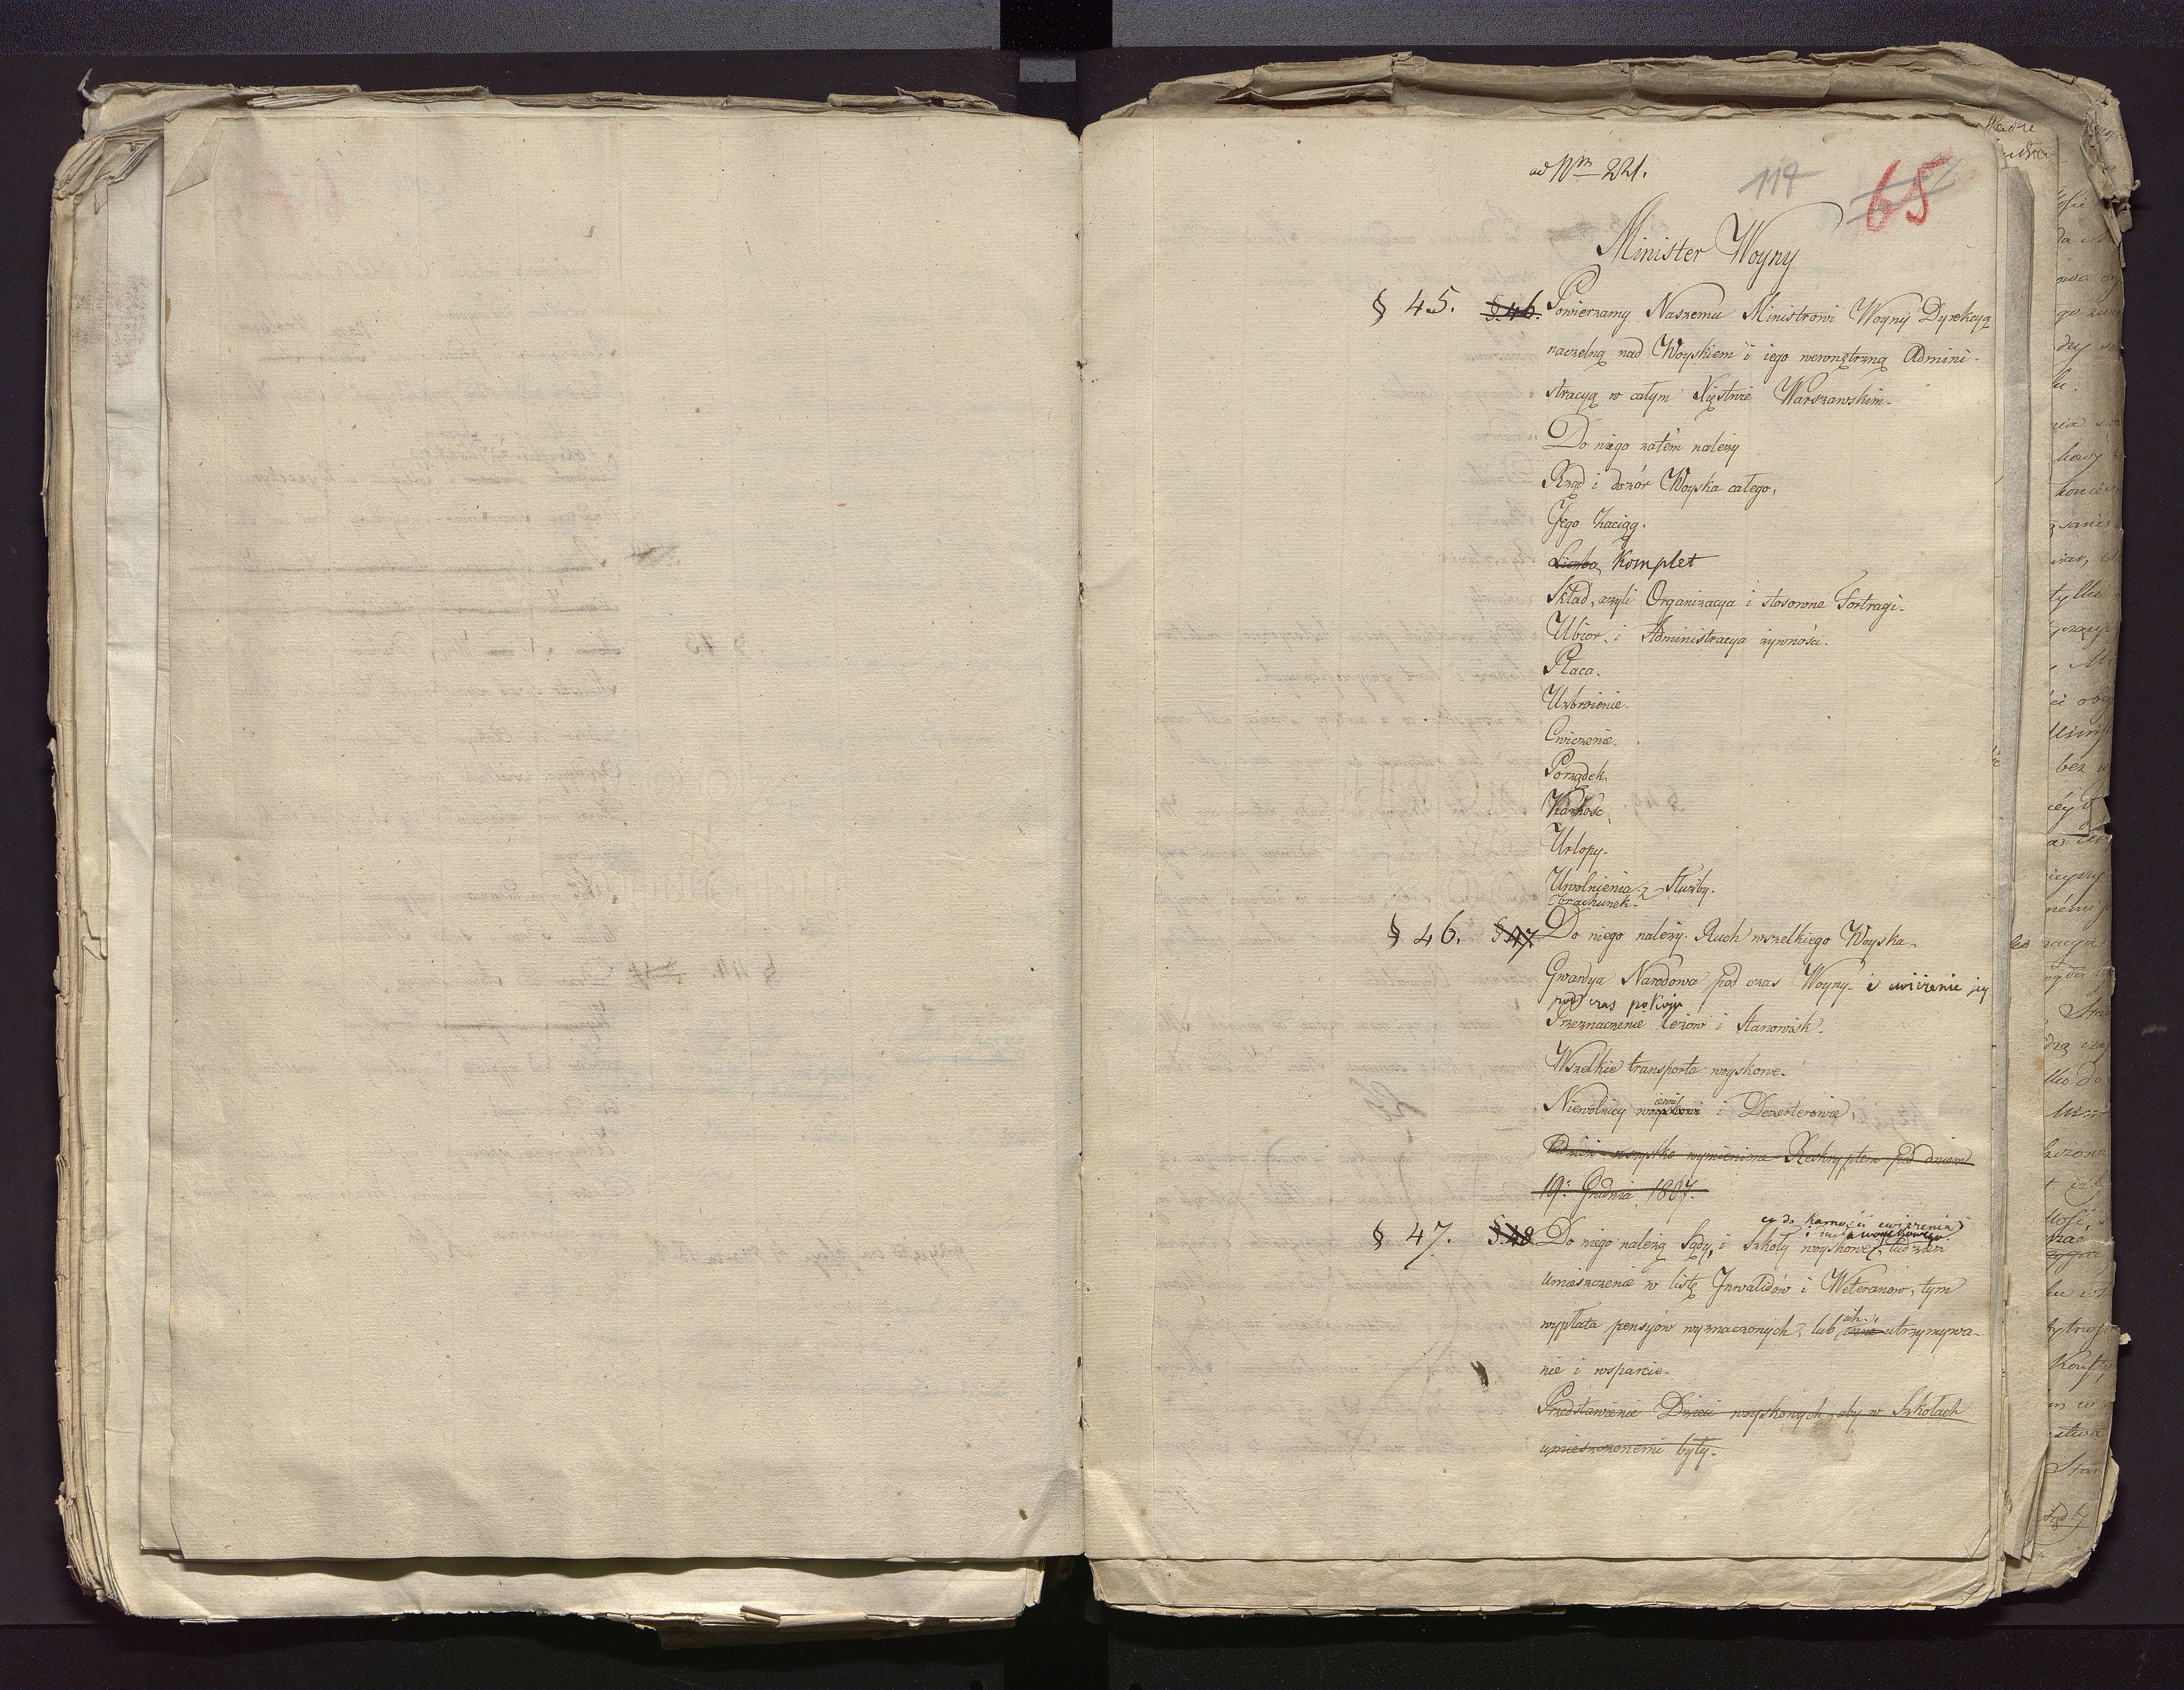 ad Nrm 221.
114
65
Minister Woyny
§ 45. § 46. Powierzamy Naszemu Ministrowi Woyny Dyrekcyą
naczelną nad Woyskiem i iego wewnętrzną Admini-
stracyą w całym Xięstwie Warszawskim.
Do niego zatém należy
Rząd i dozór Woyska całego,
Jego Zaciąg.
Liczba Komplet
Skład, czyli Organizacya i stosowne Fortragi.
Ubior, i Administracya żywności.
Płaca.
Uzbroienie.
Cwiczenie.
Porządek,
Karność,
Urlopy.
Uwolnienia z Służby.
Obrachunek.
§ 46. § 47. Do niego należy Ruch wszelkiego Woyska.
Gwardya Narodowa pod czas Woyny. i cwiczenie jey
pod czas pokoju
Przeznaczenie leżów i Stanowisk.
Wszelkie transporta woyskowe.
Niewolnicy woyskowi i Dezerterowie,
wszystko wymienione Reskryptem pod dniem
19. Grudnia 1807.
co do Karności cwiczenia
§ 47. § 48 Do niego należą Sądy, i Szkoły woyskowe,
umieszczenie w listę Inwalidów i Weteranow, tym
wypłata pensyów wyznaczonych, lub ich utrzymywa-
nie i wsparcie.
Przedstawienie Dzieci woyskowych, aby w Szkołach
umieszczonemi były.